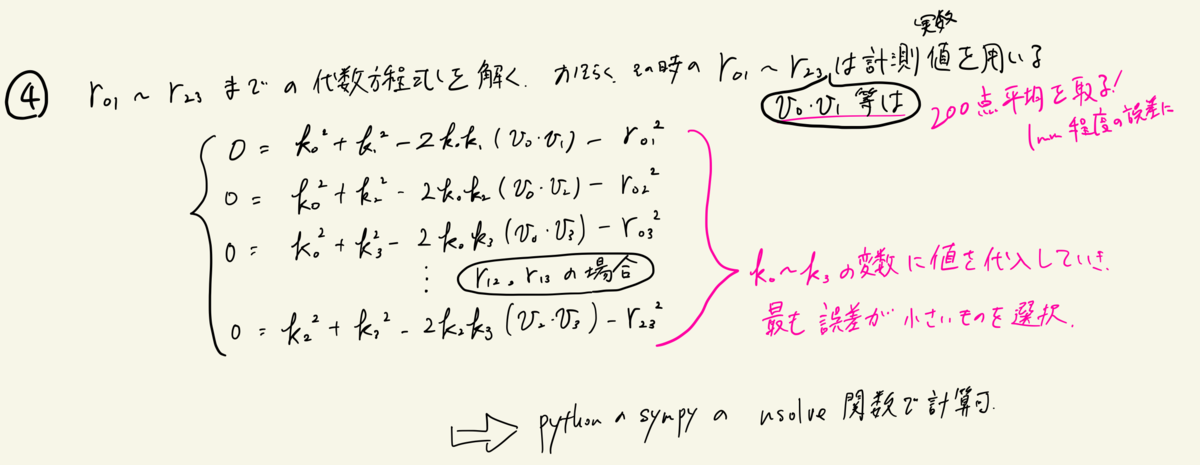 ④ r₀₁ ~ r₂₃ までの代数方程式を解く. おそらく、その時の r₀₁ ~ r₂₃ は計測値を用いる
実数
v₀・v₁ 等は
200点平均を取る!
1mm 程度の誤差に
0 = k₀² + k₁² - 2k₀k₁ (v₀・v₁) - r₀₁²
0 = k₀² + k₂² - 2k₀k₂ (v₀・v₂) - r₀₂²
0 = k₀² + k₃² - 2k₀k₃ (v₀・v₃) - r₀₃²
⋮ r₁₂, r₁₃ の場合
0 = k₂² + k₃² - 2k₂k₃ (v₂・v₃) - r₂₃²
k₀~k₃ の変数に値を代入していき
最も誤差が小さいものを選択.
⇒ python の sympy の nsolve 関数で計算可.